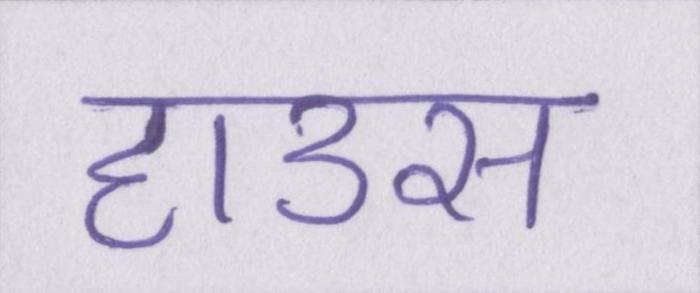 हाउस